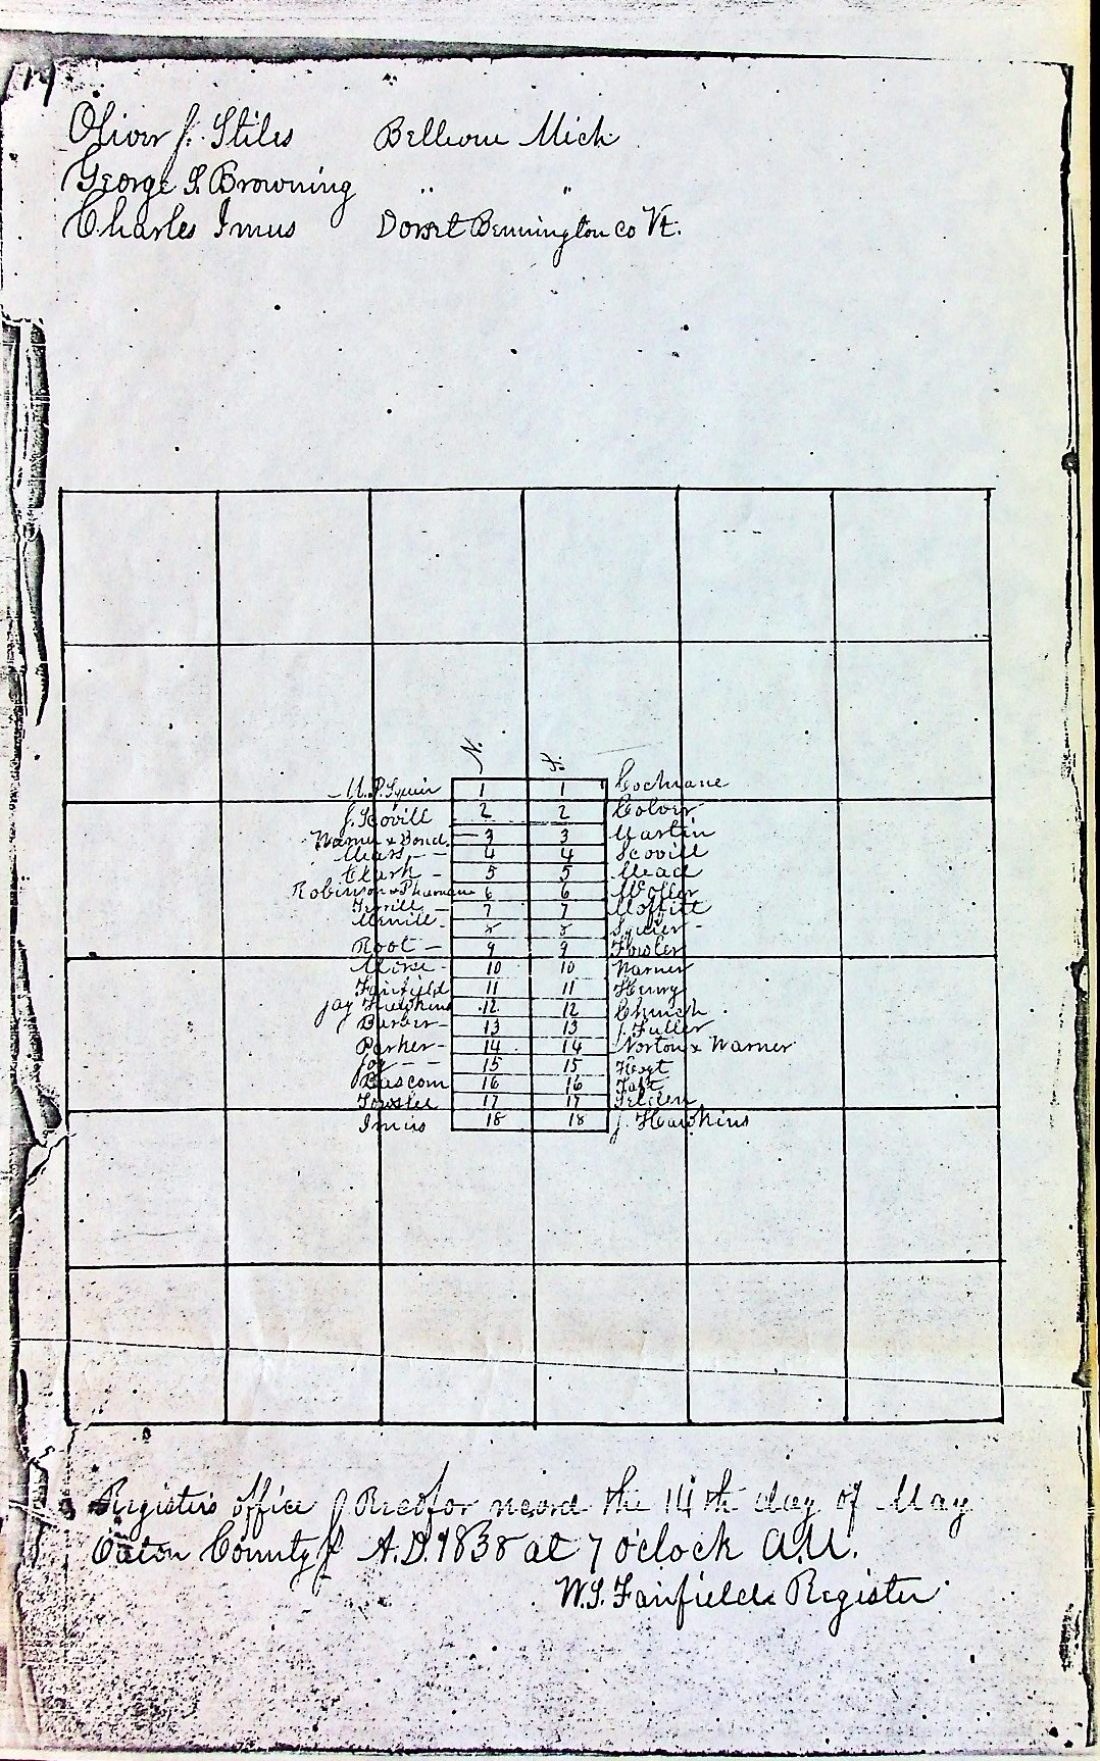 Oliver J. Stiles Bellevue Mich
George S. Browning " "
Charles Imus Dorset Bennington co Vt.
N.
M.P. Squier 1 1 Cochrane
J. Scovill 2 2 Colver
Warner & Bond 3 3 Martin
4 4 Scovill
Clark 5 5 Mead
Robinson & 6 6
7 7 Moffitt
Merrill 8 8 Squier
Root 9 9 Fowler
Morse 10 10 Warner
Fairfield 11 11 Henry
Jay Hawkins 12 12 Church
Barber 13 13 J. Fuller
Parker 14 14 Norton & Warner
Joy 15 15 Hoyt
Bascom 16 16 Taft
Towslee 17 17 Selden
Imus 18 18 J. Hawkins
Registers office } Recd for record the 14th day of May
Eaton County } A.D. 1838 at 7 o'clock A.M.
W.S. Fairfield Register